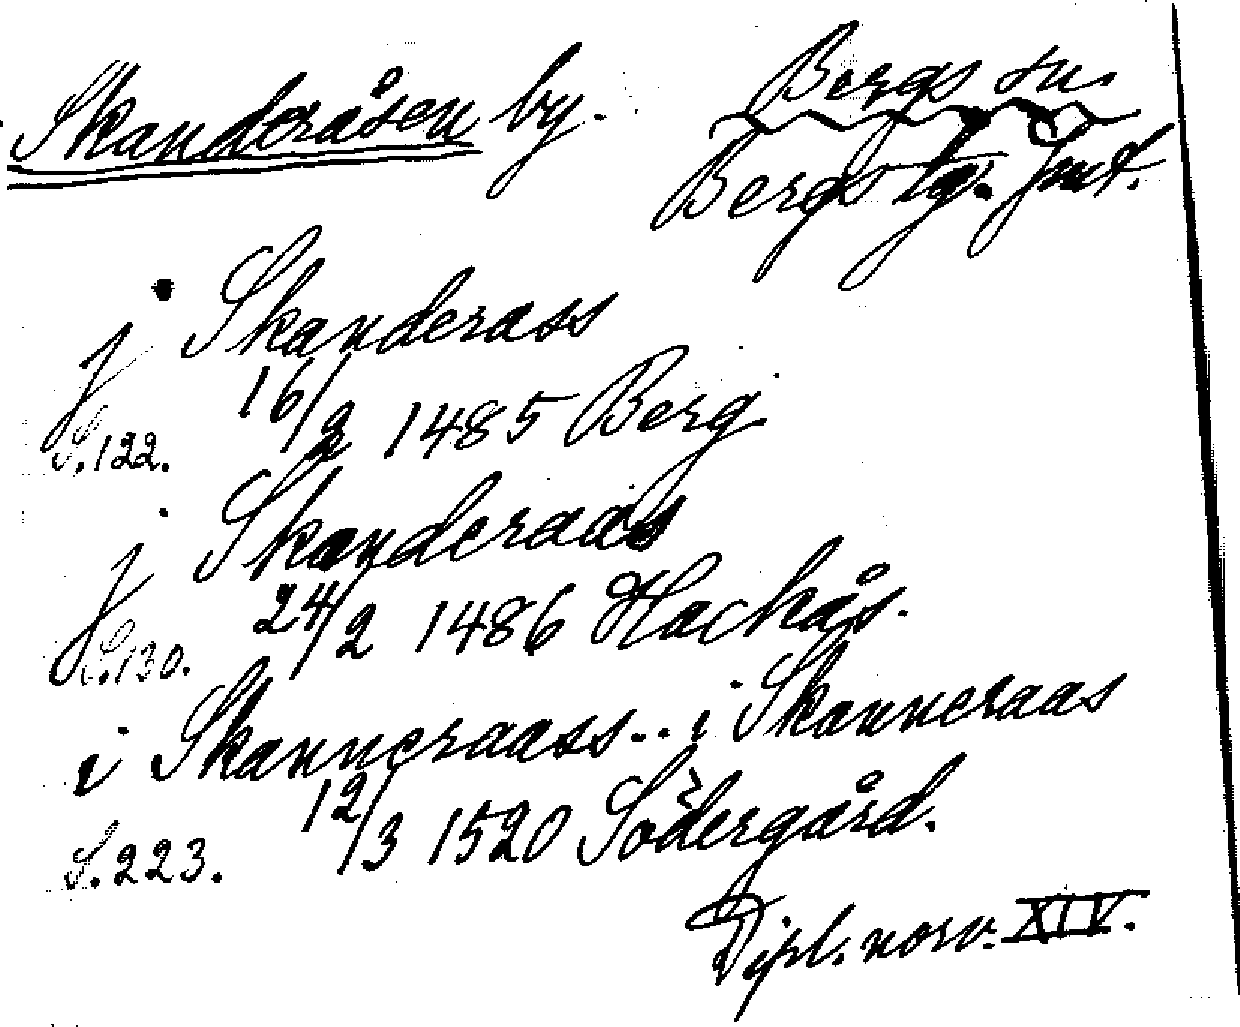 Skanderåsen by. Bergs sn.
Bergs tg. Jmt.
j Skanderass
S. 122. 16/2 1485 Berg
j Skanderaas
S. 130. 24/2 1486 Hackås.
i Skanneraass.. i Skanneraas
S. 223. 12/3 1520 Södergård.
Dipl. norv. XIV.